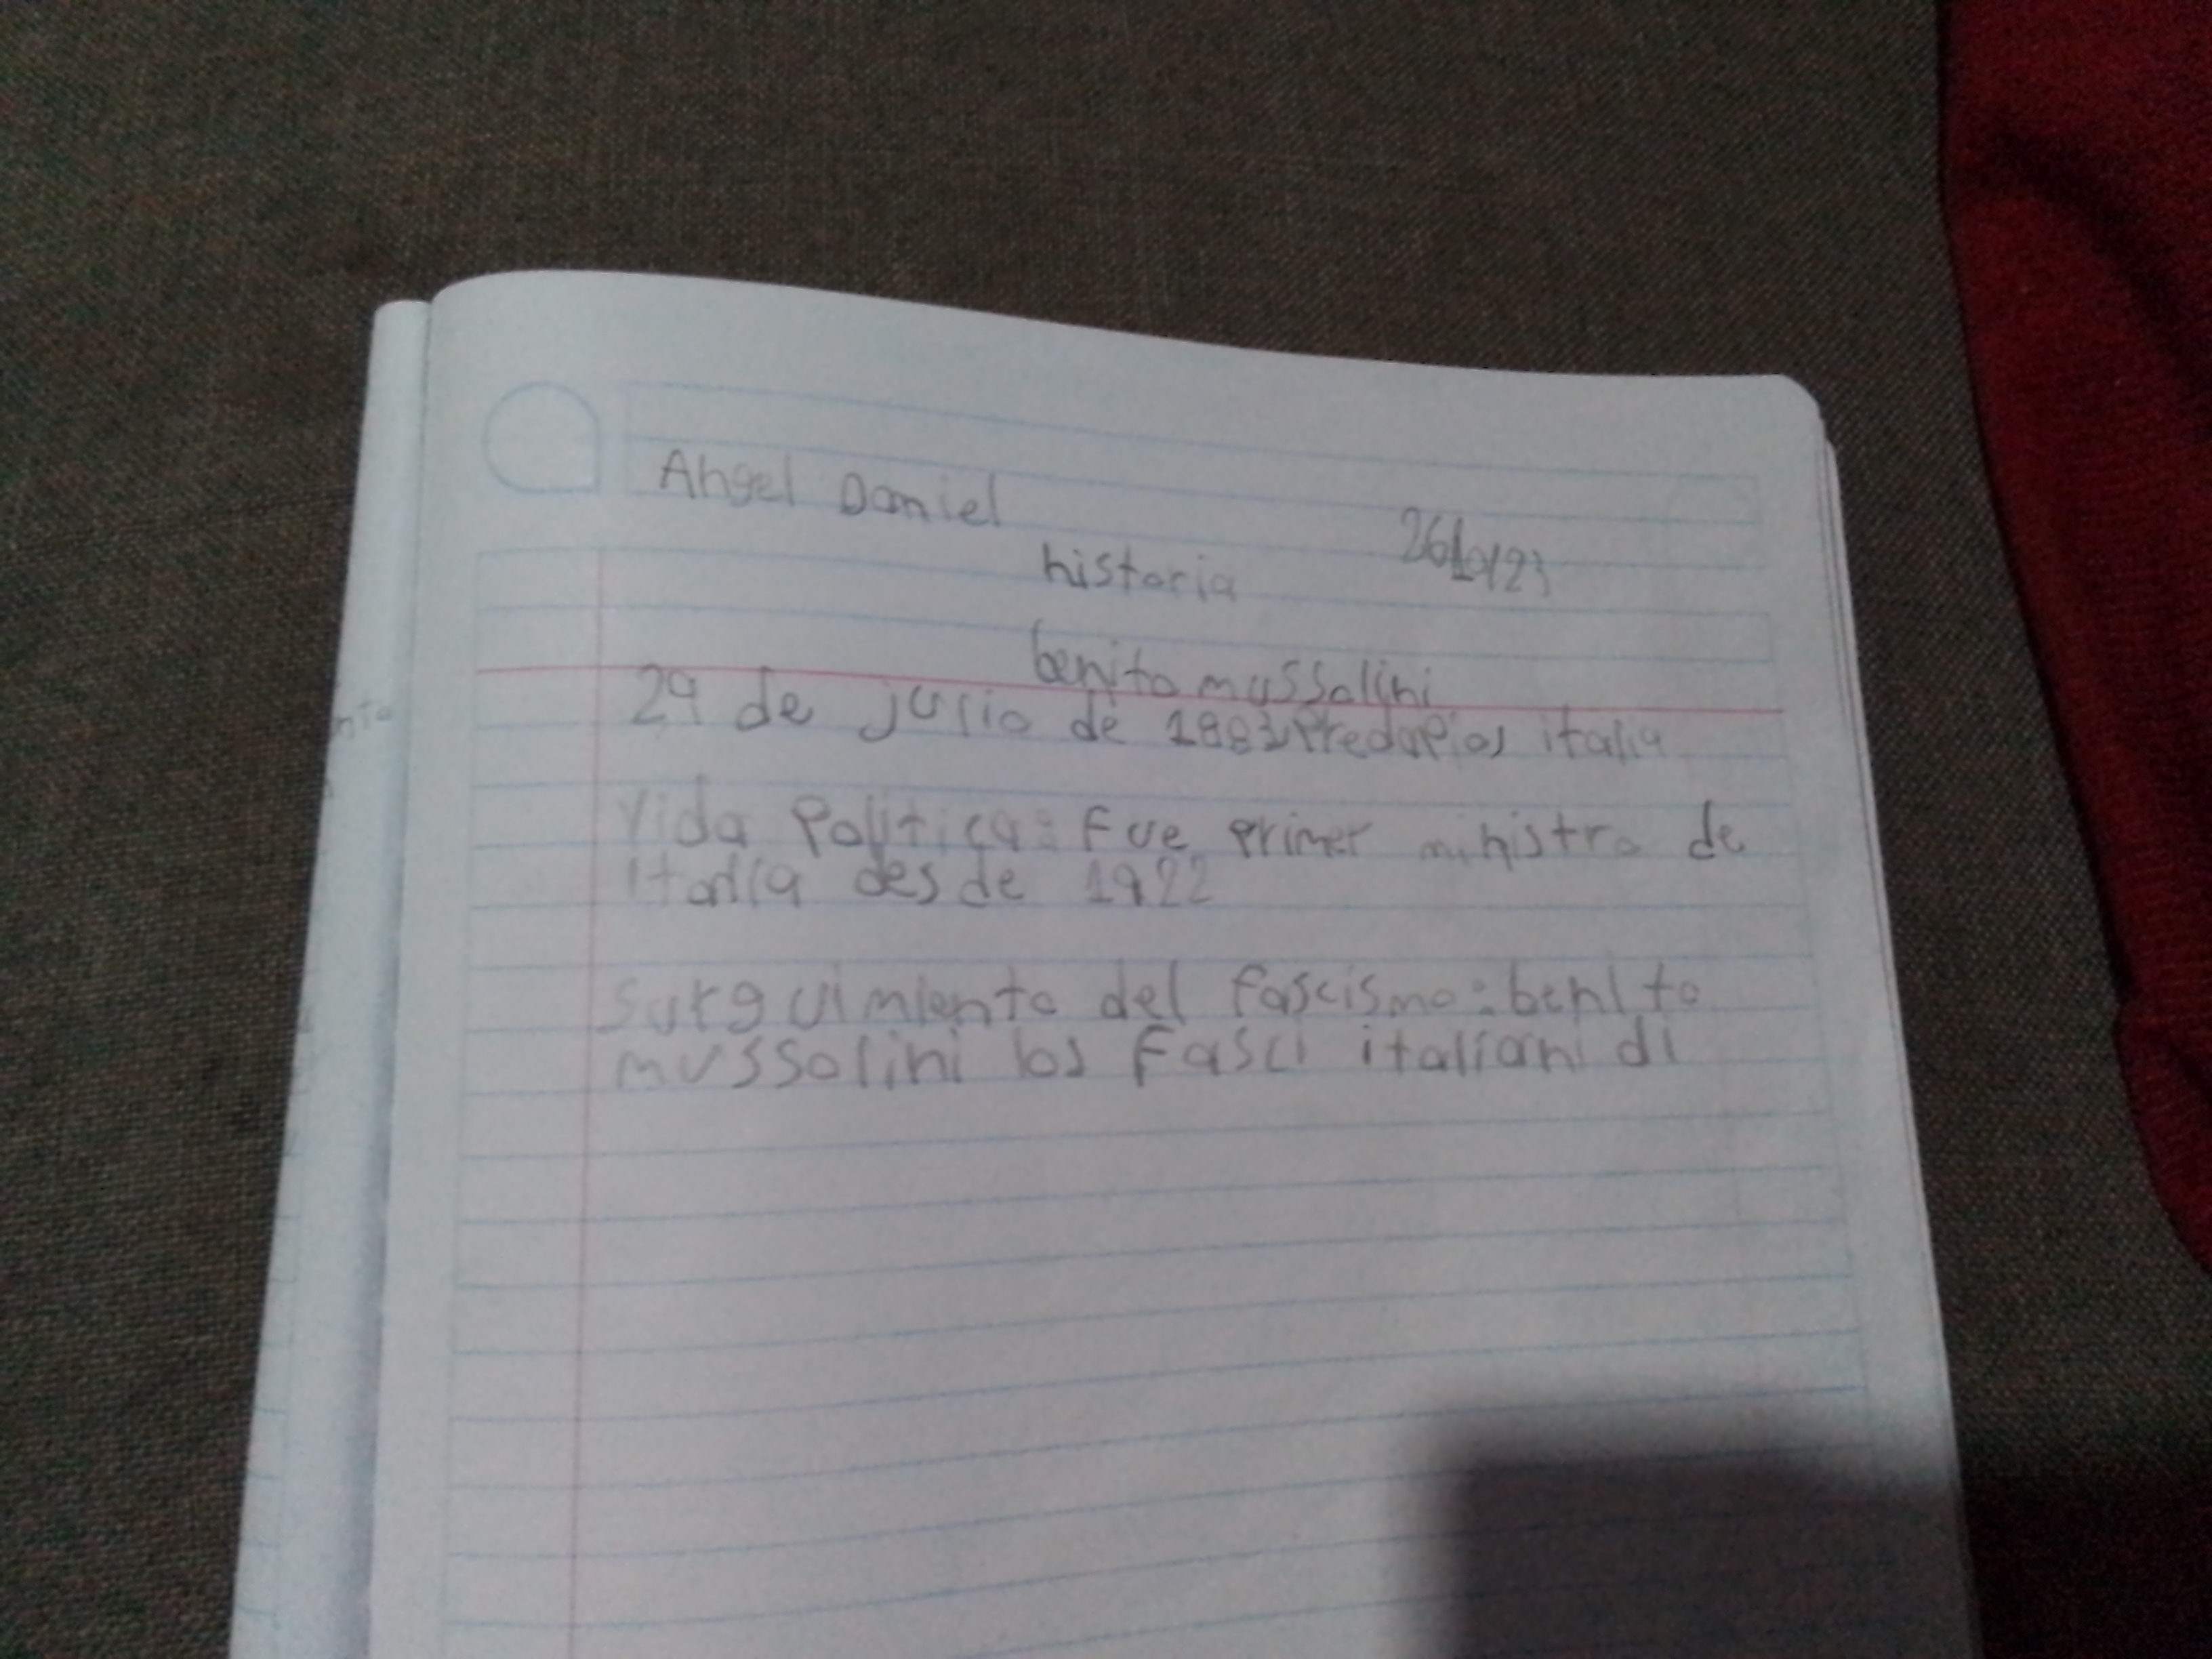 Angel Daniel
historia
benito mussolini
29 de julio de 1883 italia
Vida Politica: Fue primer ministro de
italia desde 1922
Surguimiento del fascismo: benito
mussolini los Fasci italiani di